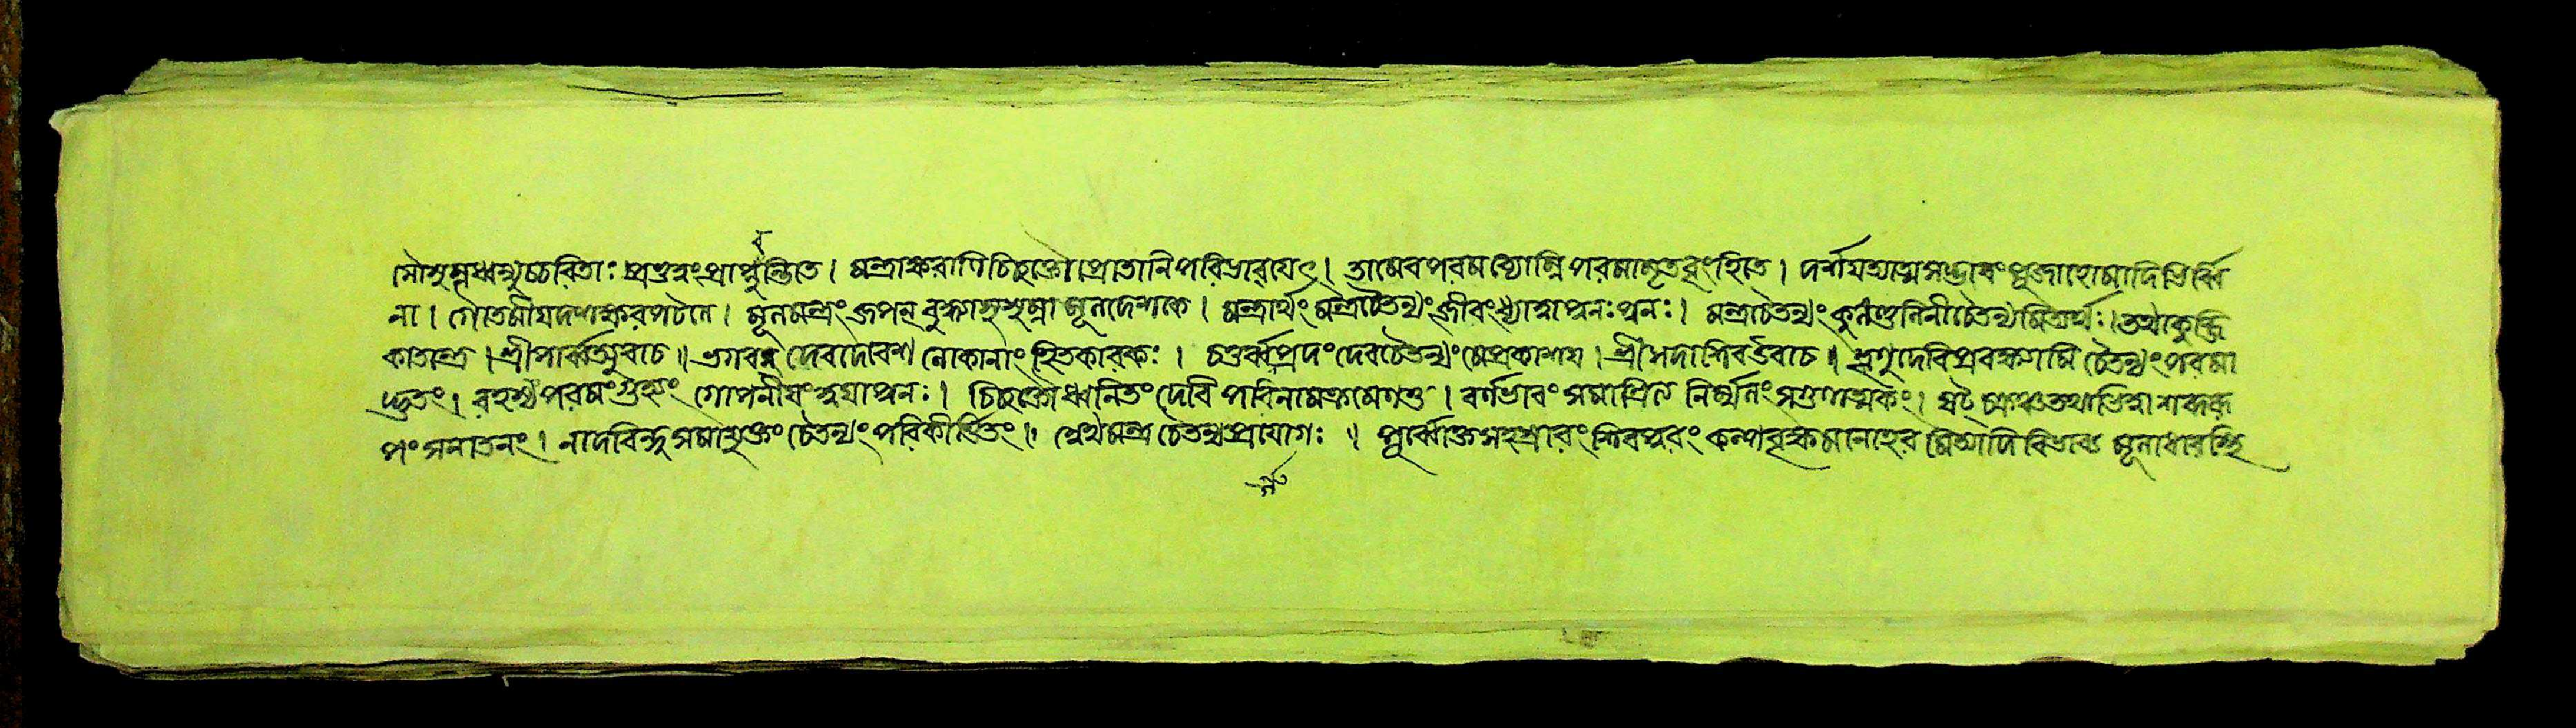 সৌষুম্নধ্বন্যুচ্চরিতাঃ প্রভুত্বং প্রাপ্নুবন্তি তে । মন্ত্রাক্ষরাণি চিচ্ছক্তৌ প্রোতানি পরিভাবয়েৎ । তামেব পরমব্যোম্নি পরমামৃতবৃংহিতে । দর্শয়ত্যাত্মসদ্ভাবং পূজাহোমাদিভির্ব্বি
না । গৌতমীয়দশাক্ষরপটলে । মূলমন্ত্রং জপন্ বুদ্ধ্যা সুষুম্না মূলদেশকে । মন্ত্রার্থং মন্ত্রচৈতন্যং জীবং ধ্যাত্বা পুনঃ পুনঃ । মন্ত্রচৈতন্যং কুলকুণ্ডলিনী চৈতন্যমিত্যর্থঃ । তথা কুব্জি
কাতন্ত্রে । শ্রীপার্ব্বত্যুবাচ ॥ ভগবন্ দেবদেবেশ লোকানাং হিতকারকঃ । চতুর্ব্বর্গপ্রদং দেব চৈতন্যং মে প্রকাশয় । শ্রীসদাশিব উবাচ ॥ শৃণু দেবি প্রবক্ষ্যামি চৈতন্যং পরমা
দ্ভুতং । রহস্যং পরমং গুহ্যং গোপনীয়ং ত্বয়া পুনঃ । চিচ্ছক্তৌ ধ্বনিতং দেবি পরিনামক্রমেণ তু । বর্ণভাবং সমাশ্রিত্য নির্ম্মলং সগুণাত্মকং । ষট্চক্রঞ্চ তথা ভিত্ত্বা শব্দরূ
পং সনাতনং । নাদবিন্দুসমাযুক্তং চৈতন্যং পরিকীর্ত্তিতং ॥ অথ মন্ত্রচৈতন্যপ্রয়োগঃ ॥ পূর্ব্বোক্ত সহস্রারং শিবপুরং কল্পবৃক্ষ মনোহর মিত্যাদি বিভাব্য মূলাধারস্থি